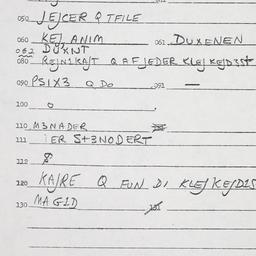 050 JEJCER Q TFILE
060 KEJ ANIM 061 DUXENEN
062 DUXNT
080 ROJN1KAJT Q AF JEDER KLEJ KEJD3St
090 PSIX3 Q DO 091 —
100 O
110 M3NADER
111 IER St3NODERT
112
120 KAJRE Q FUN DI KLEJ KEJD1S
130 MAGID 131